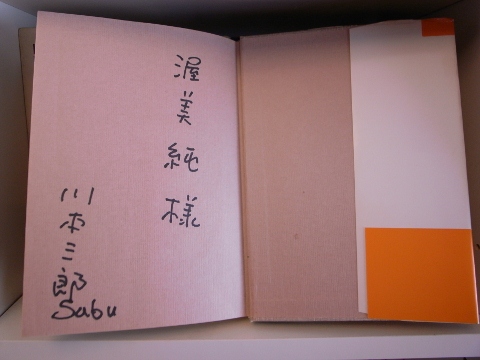 渥美純様
川本三郎
Sabu